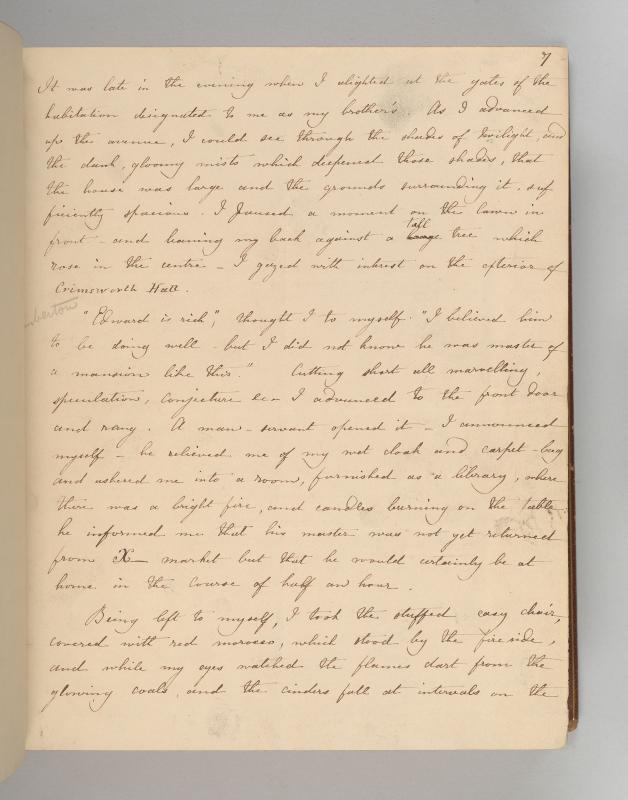 7
It was late in the evening when I alighted at the gates of the
habitation designated to me as my brother's. As I advanced
up the avenue, I could see through the shades of twilight, and
the dank, gloomy mists which deepened those shades, that
the house was large and the grounds surrounding it, suf
ficiently spacious. I paused a moment on the lawn in
tall
front - and leaning my back against a tree which
rose in the centre - I gazed with interest on the exterior of
Crimsworth Hall.
"Edward is rich", thought I to myself. "I believed him
to be doing well - but I did not know he was master of
a mansion like this." Cutting short all marvelling,
speculation, conjecture &c - I advanced to the front door
and rang. A man-servant opened it - I announced
myself - he relieved me of my wet cloak and carpet-bag
and ushered me into a room, furnished as a library, where
there was a bright fire, and candles burning on the table:
he informed me that his master was not yet returned
from X— market but that he would certainly be at
home in the course of half an hour.
Being left to myself, I took the stuffed easy chair,
covered with red morocco, which stood by the fireside,
and while my eyes watched the flames dart from the
glowing coals, and the cinders fall at intervals on the